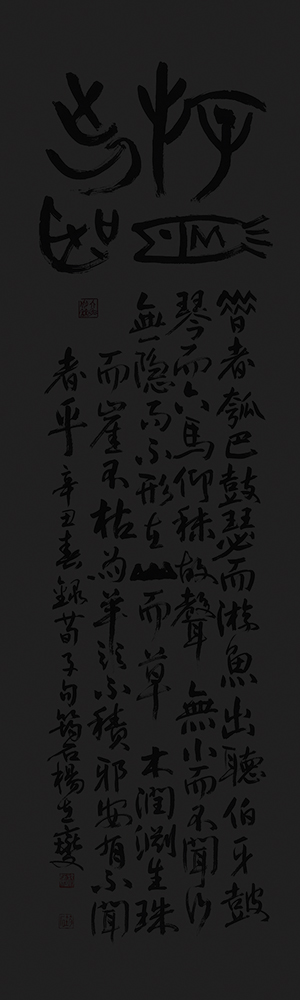 游魚
出聽
昔者瓠巴鼓瑟而游魚出聽伯牙鼓
琴而六馬仰秣故聲無小而不聞行
無隱而不形在山而草木潤淵生珠
而崖不枯為善不積邪安有不聞
者乎 辛丑春錄荀子句筠石楊立燮